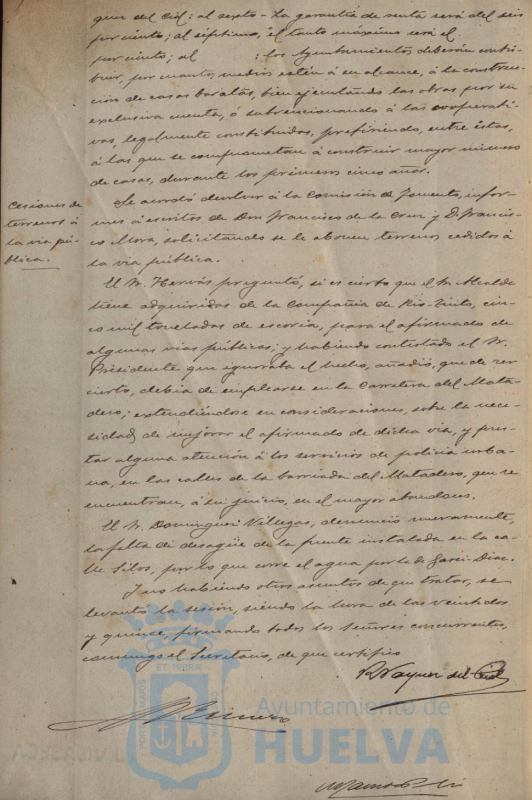 quez del Cid: al sexto - La garantía de renta será del seis
por ciento; al séptimo, el tanto máximo será el
por ciento; al : los Ayuntamientos deberán contri-
buir, por cuantos medios estén á su alcance, á la construc-
ción de casas baratas, bien ejecutando las obras por su
exclusiva cuenta, ó subvencionando á las cooperati-
vas, legalmente constituidas, prefiriendo, entre éstas,
á las que se comprometan á construir mayor número
de casas, durante los primeros cinco años.
Cesiones de
terrenos á
la via pú-
blica.
Se acordó devolver á la Comisión de Fomento, infor-
mes á escritos de Don Francisco de la Cruz y D. Francis-
co Mora, solicitando se le abonen terrenos cedidos á
la via pública.
El Sr. Hervás preguntó, si es cierto que el Sr. Alcalde
tiene adquiridas de la Compañia de Rio-Tinto, cin-
co mil toneladas de escoria, para el afirmado de
algunas vias públicas; y habiendo contestado el Sr.
Presidente que ignoraba el hecho, añadió, que de ser
cierto, debia de emplearse en la Carretera del Mata-
dero; extendiéndose en consideraciones, sobre la nece-
sidad de mejorar el afirmado de dicha via, y pres-
tar alguna atención á los servicios de policia urba-
na, en las calles de la barriada del Matadero, que se
encuentran, á su juicio, en el mayor abandono.
El Sr. Dominguez Villegas, denunció nuevamente,
la falta de desagüe de la fuente instalada en la ca-
lle Silos, por lo que corre el agua por la de Garci-Diaz.
Y no habiendo otros asuntos de que tratar, se
levantó la sesión, siendo la hora de las veintidos
y quince, firmando todos los Señores concurrentes,
conmigo el Secretario, de que certifico
Vazquez del Cid
PORTUS MARIS
ET TERRÆ
CUSTODIA
Ayuntamiento de
HUELVA